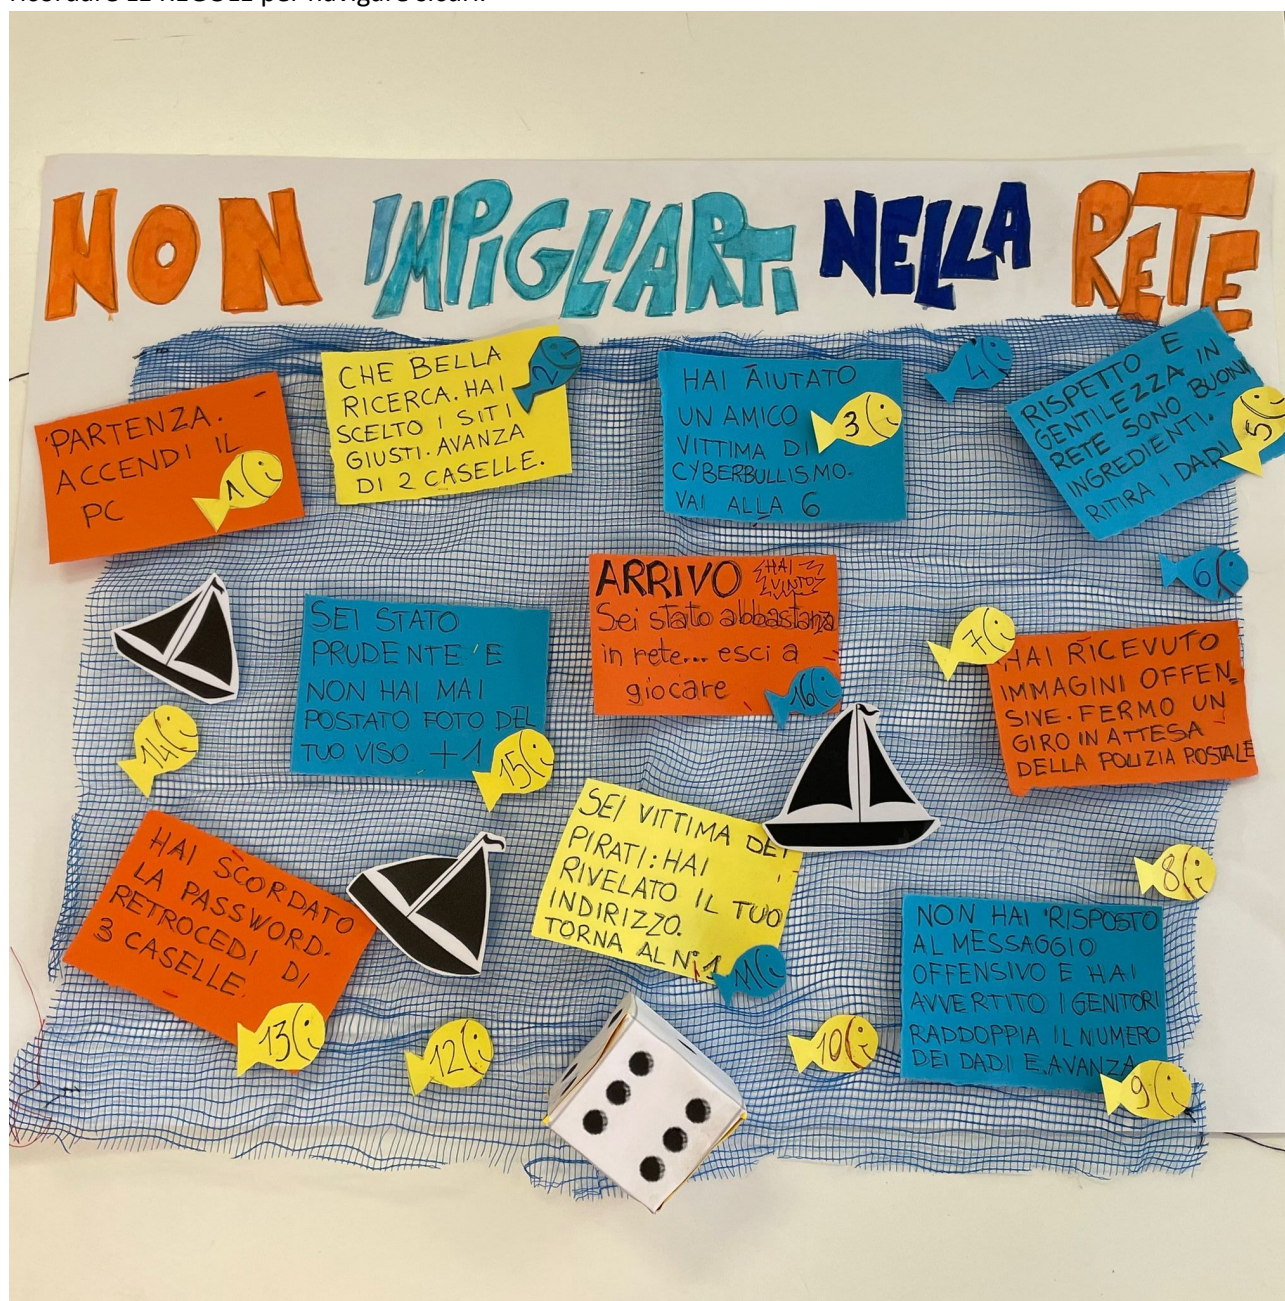 ricordare LE REGOLE per navigare sicuri.
NON IMPIGLIARTI NELLA RETE
PARTENZA.
ACCENDI IL
PC
1
CHE BELLA
RICERCA. HAI
SCELTO I SITI
GIUSTI. AVANZA
DI 2 CASELLE.
2
HAI AIUTATO
UN AMICO
VITTIMA DI
CYBERBULLISMO.
VAI ALLA 6
3
4
RISPETTO E
GENTILEZZA IN
RETE SONO BUONI
INGREDIENTI.
RITIRA I DADI
5
6
7
HAI RICEVUTO
IMMAGINI OFFEN-
SIVE. FERMO UN
GIRO IN ATTESA
DELLA POLIZIA POSTALE
8
NON HAI RISPOSTO
AL MESSAGGIO
OFFENSIVO E HAI
AVVERTITO I GENITORI
RADDOPPIA IL NUMERO
DEI DADI E AVANZA
9
10
SEI VITTIMA DEI
PIRATI: HAI
RIVELATO IL TUO
INDIRIZZO.
TORNA AL N° 1
11
12
HAI SCORDATO
LA PASSWORD.
RETROCEDI DI
3 CASELLE.
13
14
SEI STATO
PRUDENTE E
NON HAI MAI
POSTATO FOTO DEL
TUO VISO. +1
15
ARRIVO HAI
VINTO
Sei stato abbastanza
in rete... esci a
giocare
16